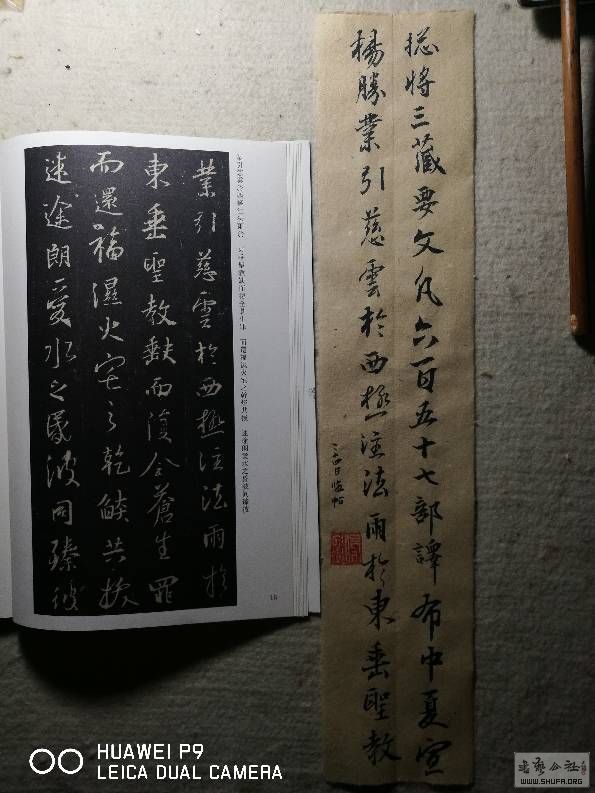 摠將三藏要文凡六百五十七部譯布中夏宣
楊勝業引慈雲於西極注法雨於東垂聖教
日臨帖
業引慈雲於西極注法雨於
東垂聖教缺而復全蒼生罪
而還福濕火宅之乾燄共拔
迷途朗愛水之昏波同臻彼
HUAWEI P9
LEICA DUAL CAMERA
书艺公社
WWW.SHUFA.ORG